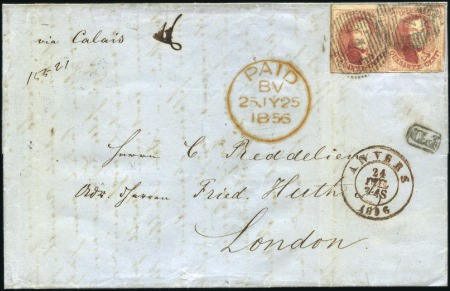 via Calais
PAID
BV
25JY25
1856
Herrn C. Reddelien
Adr. Herren Fried. Huth
London.
ANVERS
24
1856